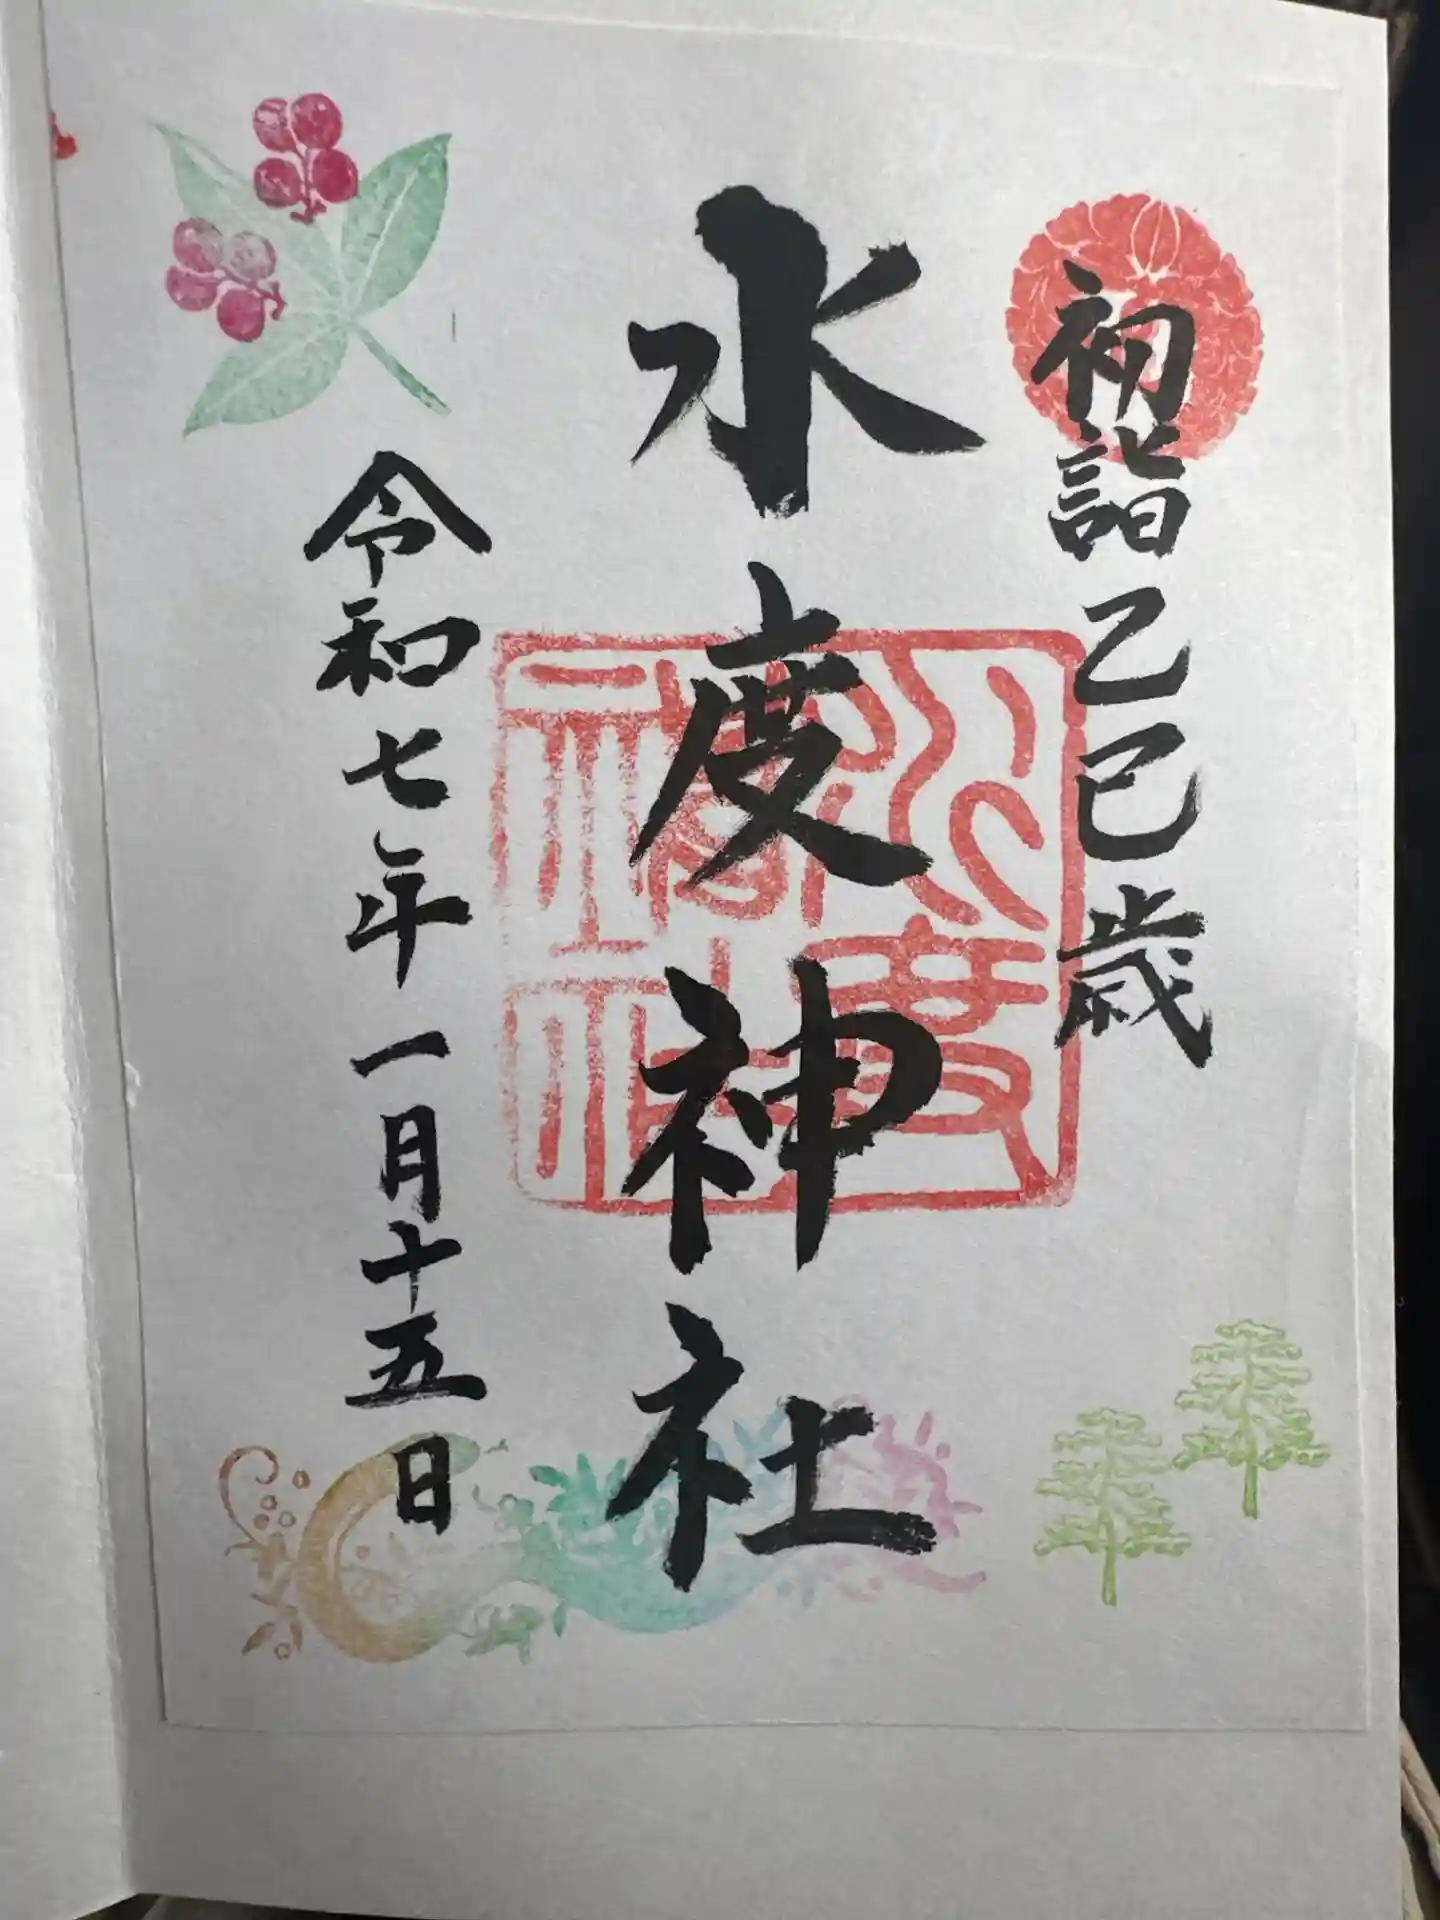 初詣乙巳歳
水度神社
令和七年一月十五日
水度神社